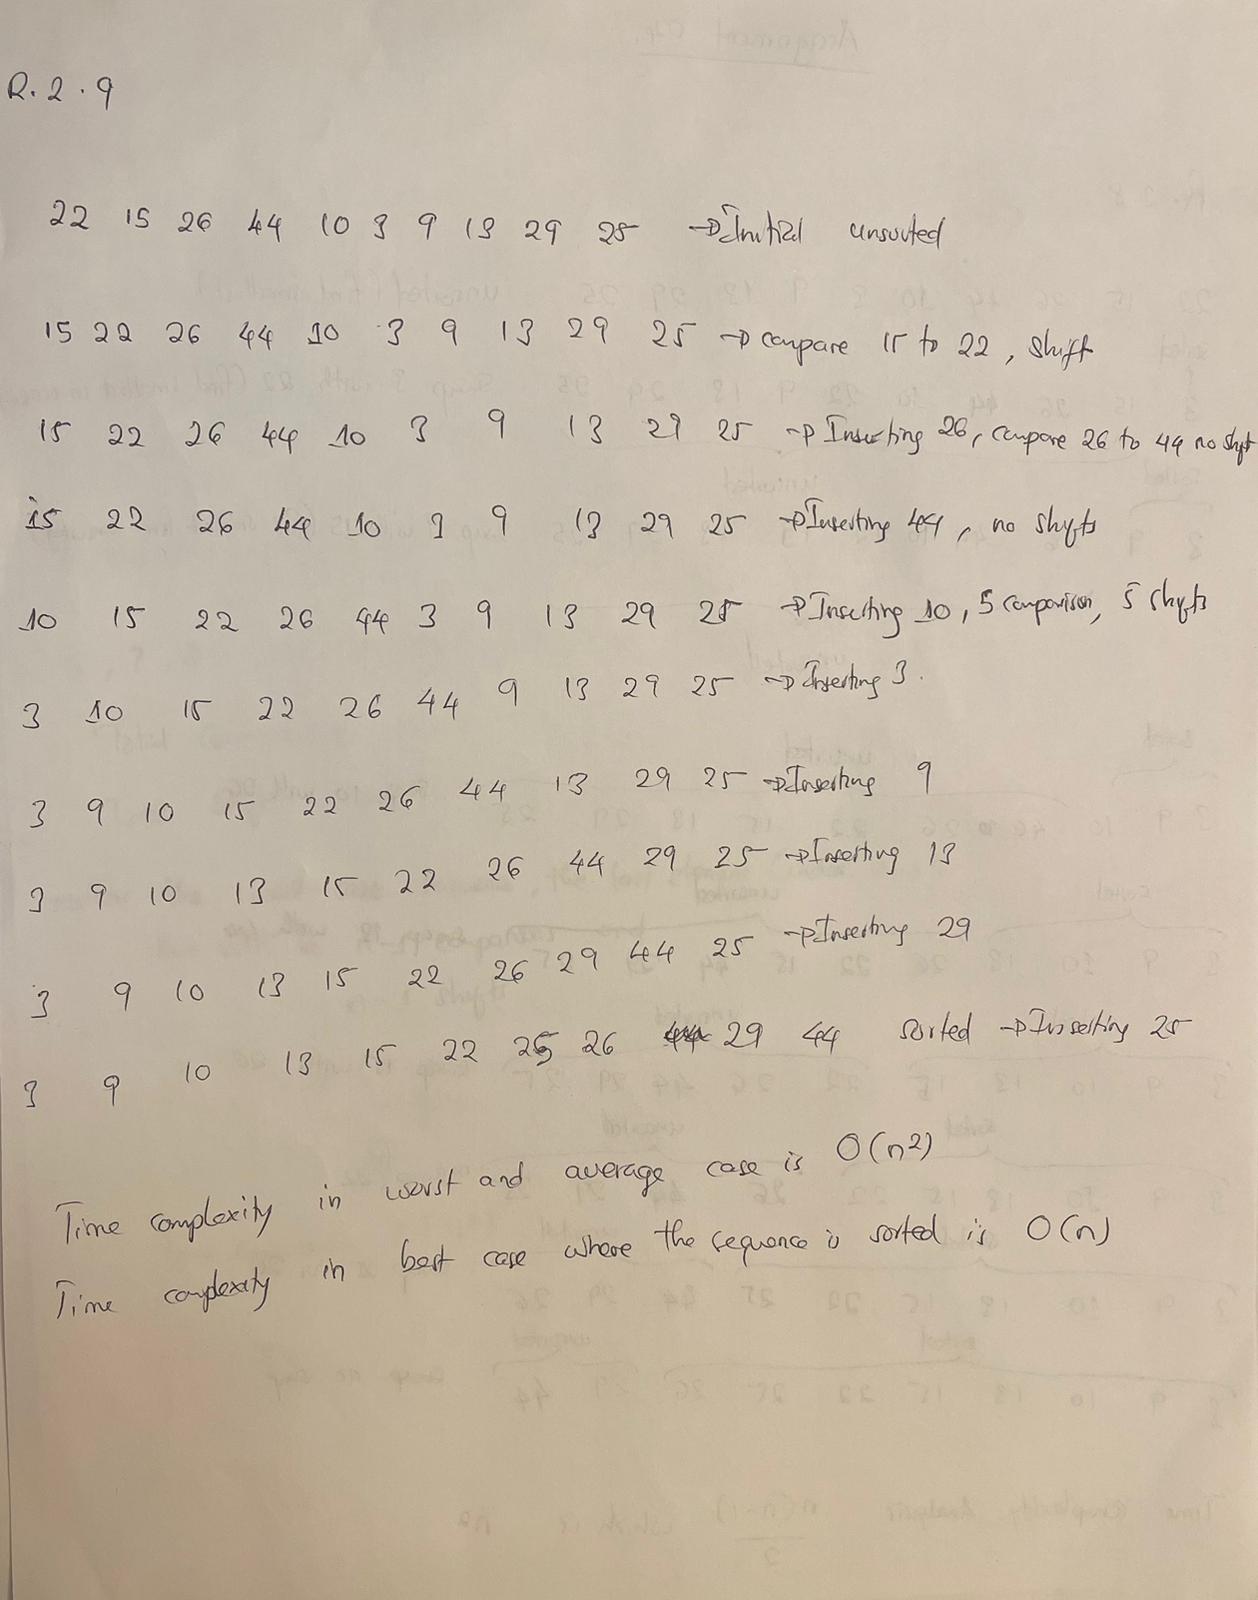 R.2.9
22 15 26 44 10 3 9 13 29 25 → Initial unsorted
15 22 26 44 10 3 9 13 29 25 → compare 15 to 22, shift
15 22 26 44 10 3 9 13 29 25 → Inserting 26, compare 26 to 44 no shift
15 22 26 44 10 3 9 13 29 25 → Inserting 44, no shifts
10 15 22 26 44 3 9 13 29 25 → Inserting 10, 5 comparison, 5 shifts
3 10 15 22 26 44 9 13 29 25 → Inserting 3.
3 9 10 15 22 26 44 13 29 25 → Inserting 9
3 9 10 13 15 22 26 44 29 25 → Inserting 13
3 9 10 13 15 22 26 29 44 25 → Inserting 29
3 9 10 13 15 22 25 26 29 44 sorted → Inserting 25
Time complexity in worst and average case is O(n2)
Time complexity in best case where the sequence is sorted is O(n)